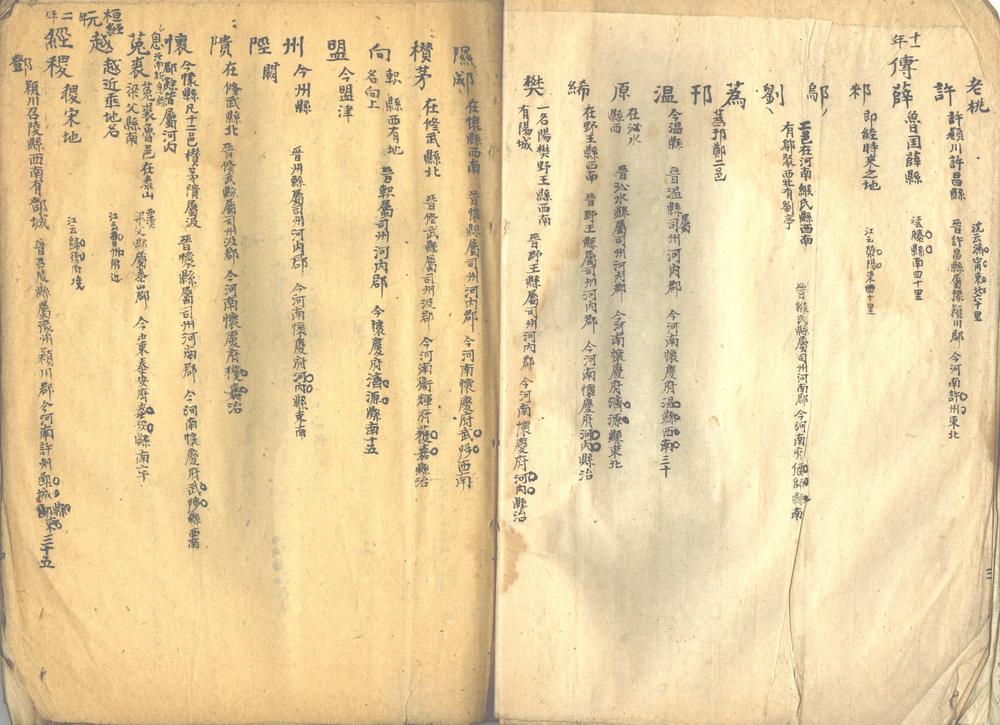 老桃
許 許潁川許昌縣 晉許昌縣屬豫潁川郡 今河南許州東北
沈云濟寧東北六十里
十一年傳
薛 魯国薛縣 滕縣南四十里
郲 即經時來之地 江云滎陽東四十里
鄔
劉 二邑在河南緱氏縣西南 有鄔聚西北有劉亭 晉緱氏縣屬司州河南郡 今河南府偃師縣南
蒍
邘 蒍邘鄭二邑
温 今温縣 晉温縣屬司州河内郡 今河南懷慶府温縣西南三十
原 在沁水縣西 晉沁水縣屬司州河内郡 今河南懷慶府濟源縣東北
絺 在野王縣西南 晉野王縣屬司州河内郡 今河南懷慶府河内縣治
樊 一名陽樊野王縣西南有陽城 晉野王縣屬司州河内郡 今河南懷慶府河内縣治
隰郕 在懷縣西南 晉懷縣屬司州河内郡 今河南懷慶府武陟西南
欑茅 在修武縣北 晉修武縣屬司州汲郡 今河南衞輝府獲嘉縣治
向 軹縣西有地名向上 晉軹屬司州河内郡 今懷慶府濟源縣南十五
盟 今盟津
州 今州縣 晉州縣屬司州河内郡 今河南懷慶府河内縣東南
陘 闕
隤 在修武縣北 晉修武縣屬司州汲郡 今河南懷慶府獲嘉治
懷 今懷縣凡十二邑欑茅隤屬汲郡餘皆屬河内 晉懷縣屬司州河南郡 今河南懷慶府武陟縣西南
息
菟裘 菟裘魯邑在泰山梁父縣南 梁父縣屬泰山郡 今山東泰安府泰安縣南
桓經元年
越 越近垂地名 江云曹州附近
二年經
稷 稷宋地 江云歸德府境
鄧 潁川召陵縣西南有鄧城 晉召陵縣屬豫州潁川郡 今河南許州郾城縣東三十五